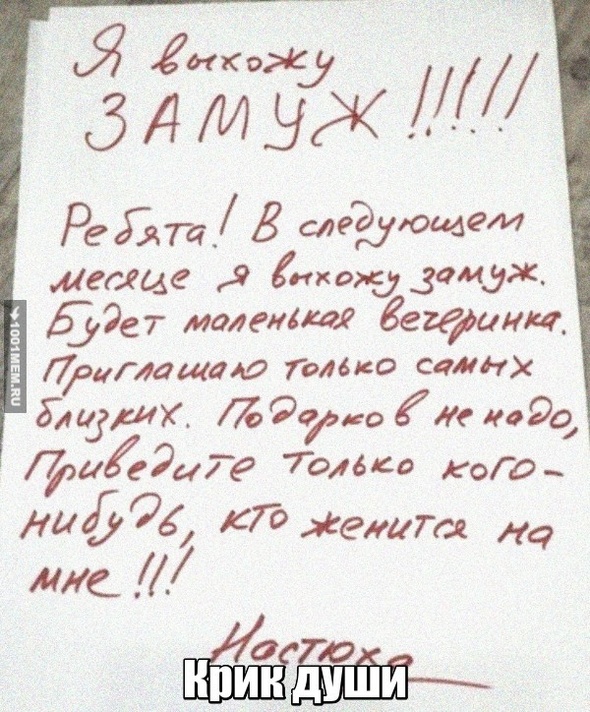 Я выхожу
ЗАМУЖ !!!!!!
Ребята! В следующем
месяце я выхожу замуж.
Будет маленькая вечеринка.
Приглашаю только самых
близких. Подарков не надо,
Приведите только кого-
нибудь, кто женится на
мне!!!
Настюха
Крик души
1001MEM.RU